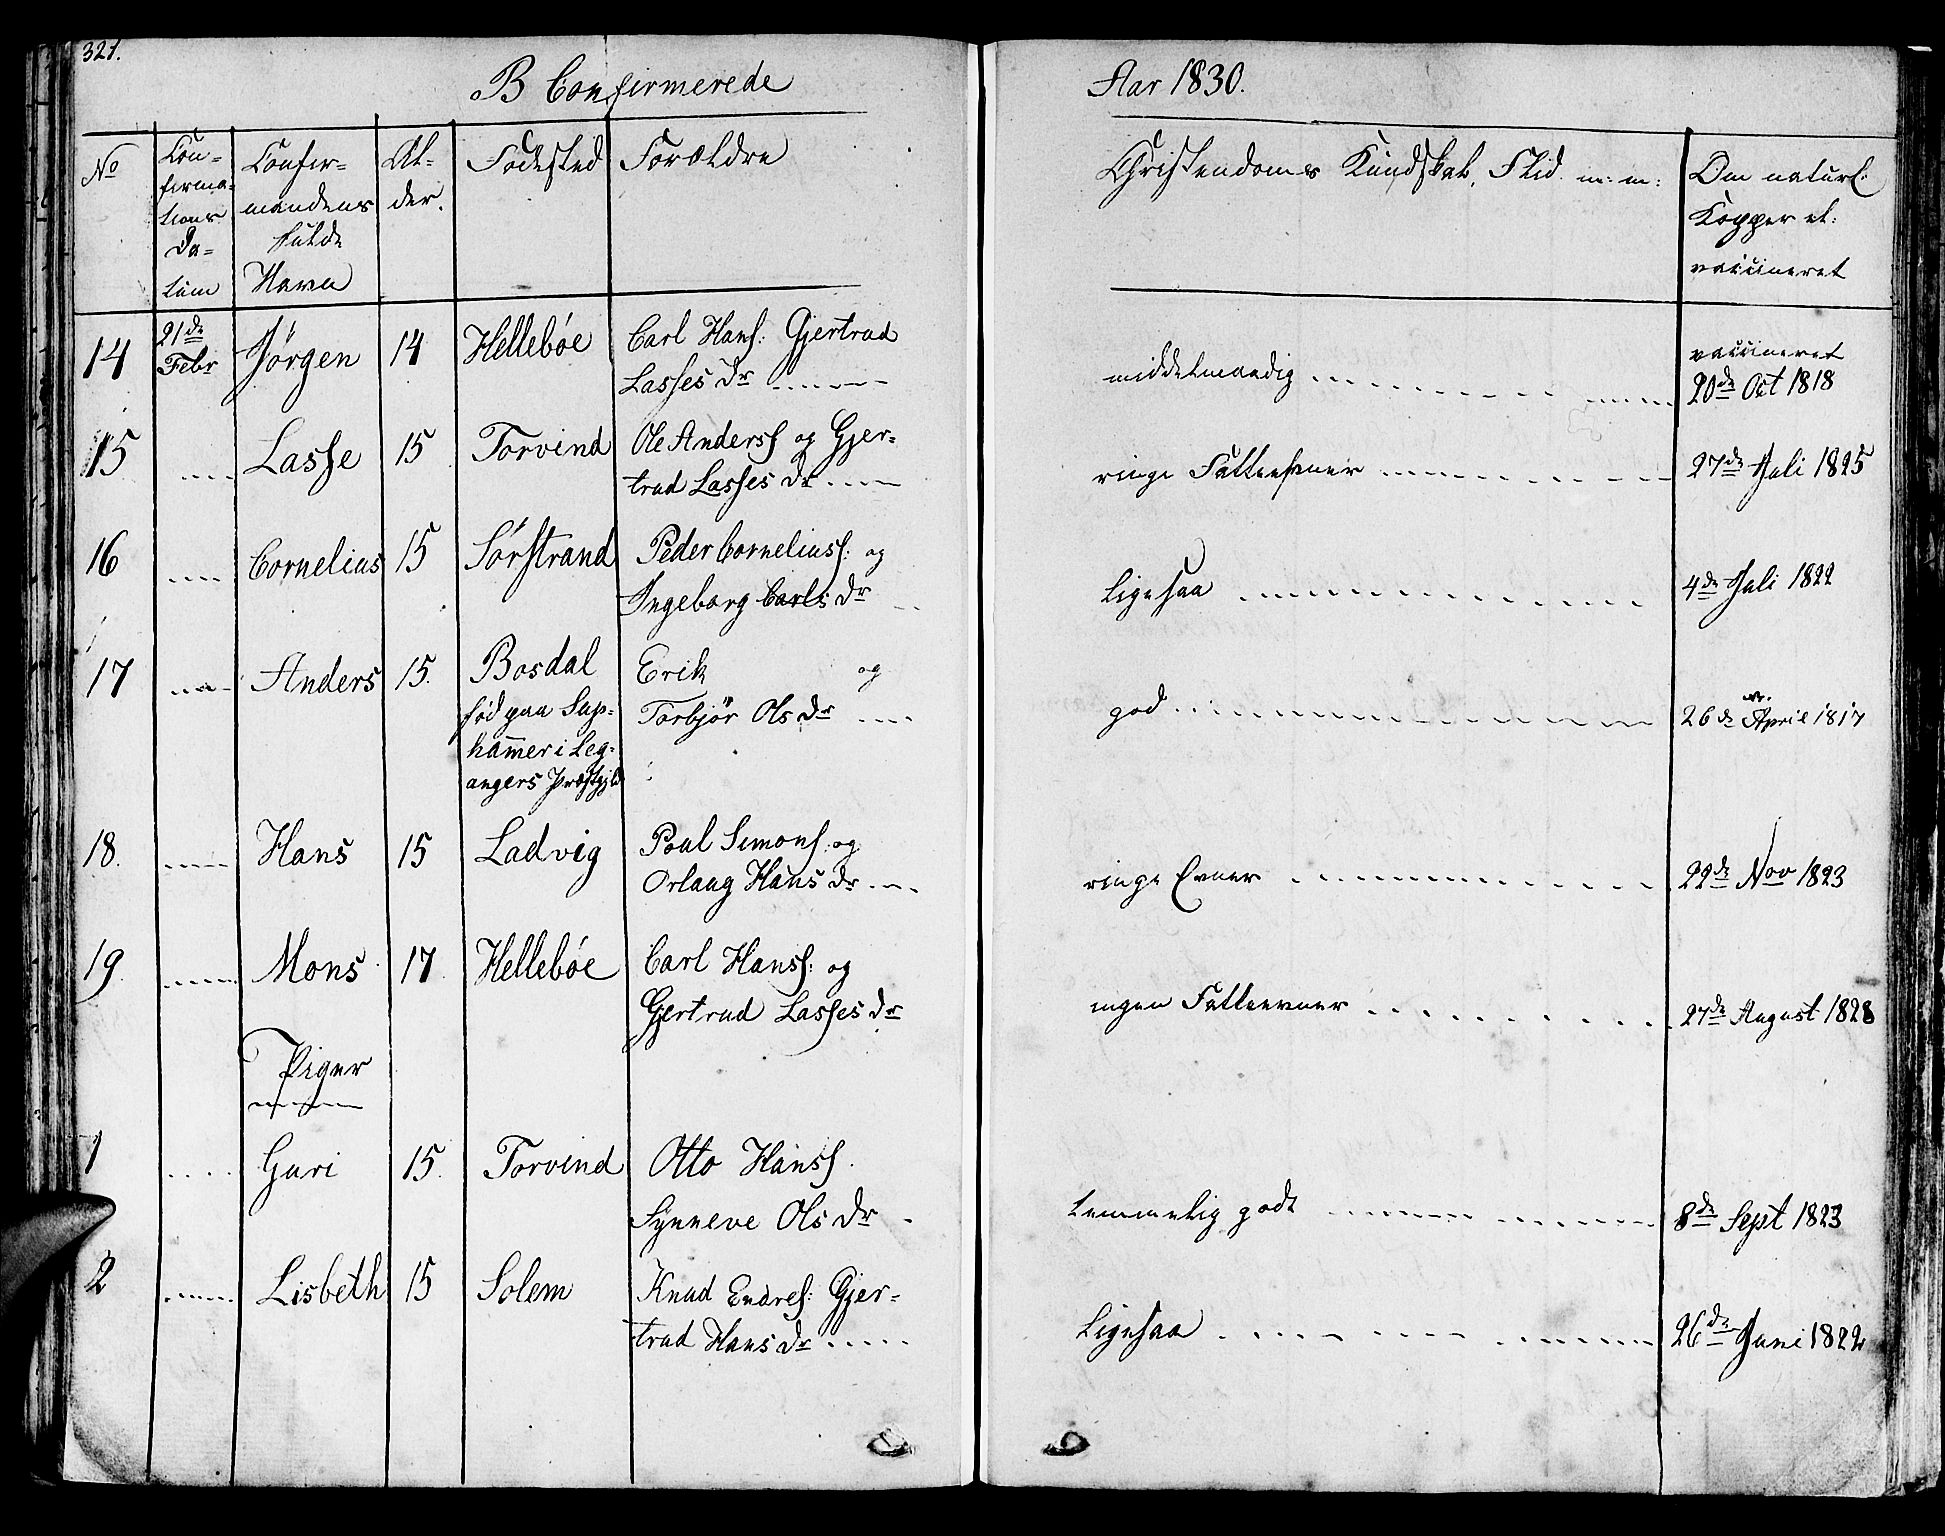 321.
B Confirmerede
Aar 1830.
No
Con-
firma-
tions
Da-
tum
Confir-
mandens
fulde
Navn
Al-
der.
Fødested
Forældre
Christendoms Kundskab, Flid m: m:
Om naturl:
Kopper el:
vaccineret
14
21de
Febr
Jørgen
14
Hellebøe
Carl Hans: Gjertrud
Lasses Dr
middelmaadig
vaccineret
20de Oct 1818
15
Lasse
15
Torvind
Ole Anders og Gjer-
trud Lasses Dr
ringe Fatteevner
27de Juli 1825
16
Cornelius
15
Sørstrand
Peder Cornelius: og
Ingeborg Carls Dr
Ligesaa
4de Juli 1822
17
Anders
15.
Bosdal
fød paa Sup-
hammer i Leg-
angers Præstgjld
Erik og
Torbjør Ols Dr
god
26de April 1817
18.
Hans
15
Ladvig
Poul Simons: og
Orlaug Hans Dr
ringe Evner
22de Nov 1823
19.
Mons
17.
Hellebøe
Carl Hanss: og
Gjertrud Lasses Dr
ingen Fatteevner
27de August 1828
Piger
1
Guri
15.
Torvind
Otto Hanss.
Synneve Ols Dr
temmelig godt
8de Sept 1823
2
Lisbeth
15
Solem
Knud Endres: Gjer-
trud Hans Dr
Ligesaa
26de Juni 1822